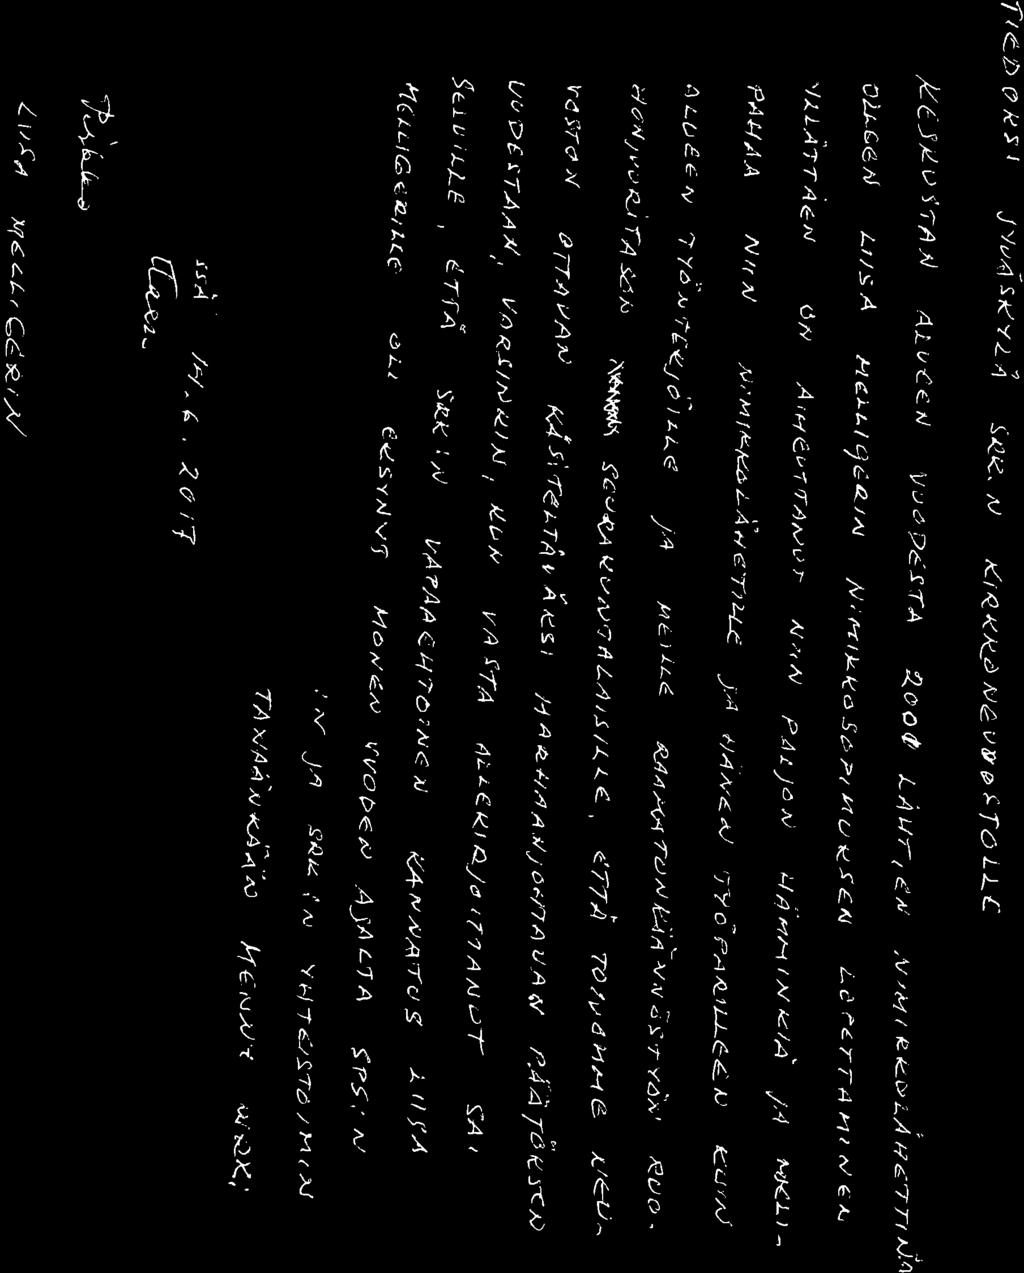 TIEDOKSI JYVÄSKYLÄ SRK:N KIRKKONEUVOSTOLLE
KESKUSTAN ALUEEN VUODESTA 2001 LÄHTIEN NIMIKKOLÄHETTINÄ
OLLEEN LIISA MELLIGERIN NIMIKKOSOPIMUKSEN LOPETTAMINEN
YLLÄTTÄEN ON AIHEUTTANUT NIIN PALJON HÄMMINKIÄ JA MIELI-
PAHAA NIIN NIMIKKOLÄHETILLE JA HÄNEN TYÖPARILLEEN KUIN
ALUEEN TYÖNTEKIJÖILLE JA MEILLE RAAMATUNKÄÄNNÖSTYÖN RUO-
HONJUURITASON SEURAKUNTALAISILLE, ETTÄ TOIVOMME NEU-
VOSTON OTTAVAN KÄSITELTÄVÄKSI HARHAANJOHTAVAN PÄÄTÖKSEN
UUDESTAAN, VARSINKIN, KUN VASTA ALLEKIRJOITTANUT SAI
SELVILLE, ETTÄ SRK:N VAPAAEHTOINEN KANNATUS LIISA
MELLIGERILLE OLI EKSYNYT MONEN VUODEN AJALTA SPS:N
IN JA SRK:N YHTEISTOIMIN
TÄNÄÄNKÄÄN MENNYT
SSÄ 14.6.2017
Pirkko
LIISA MELLIGERIN